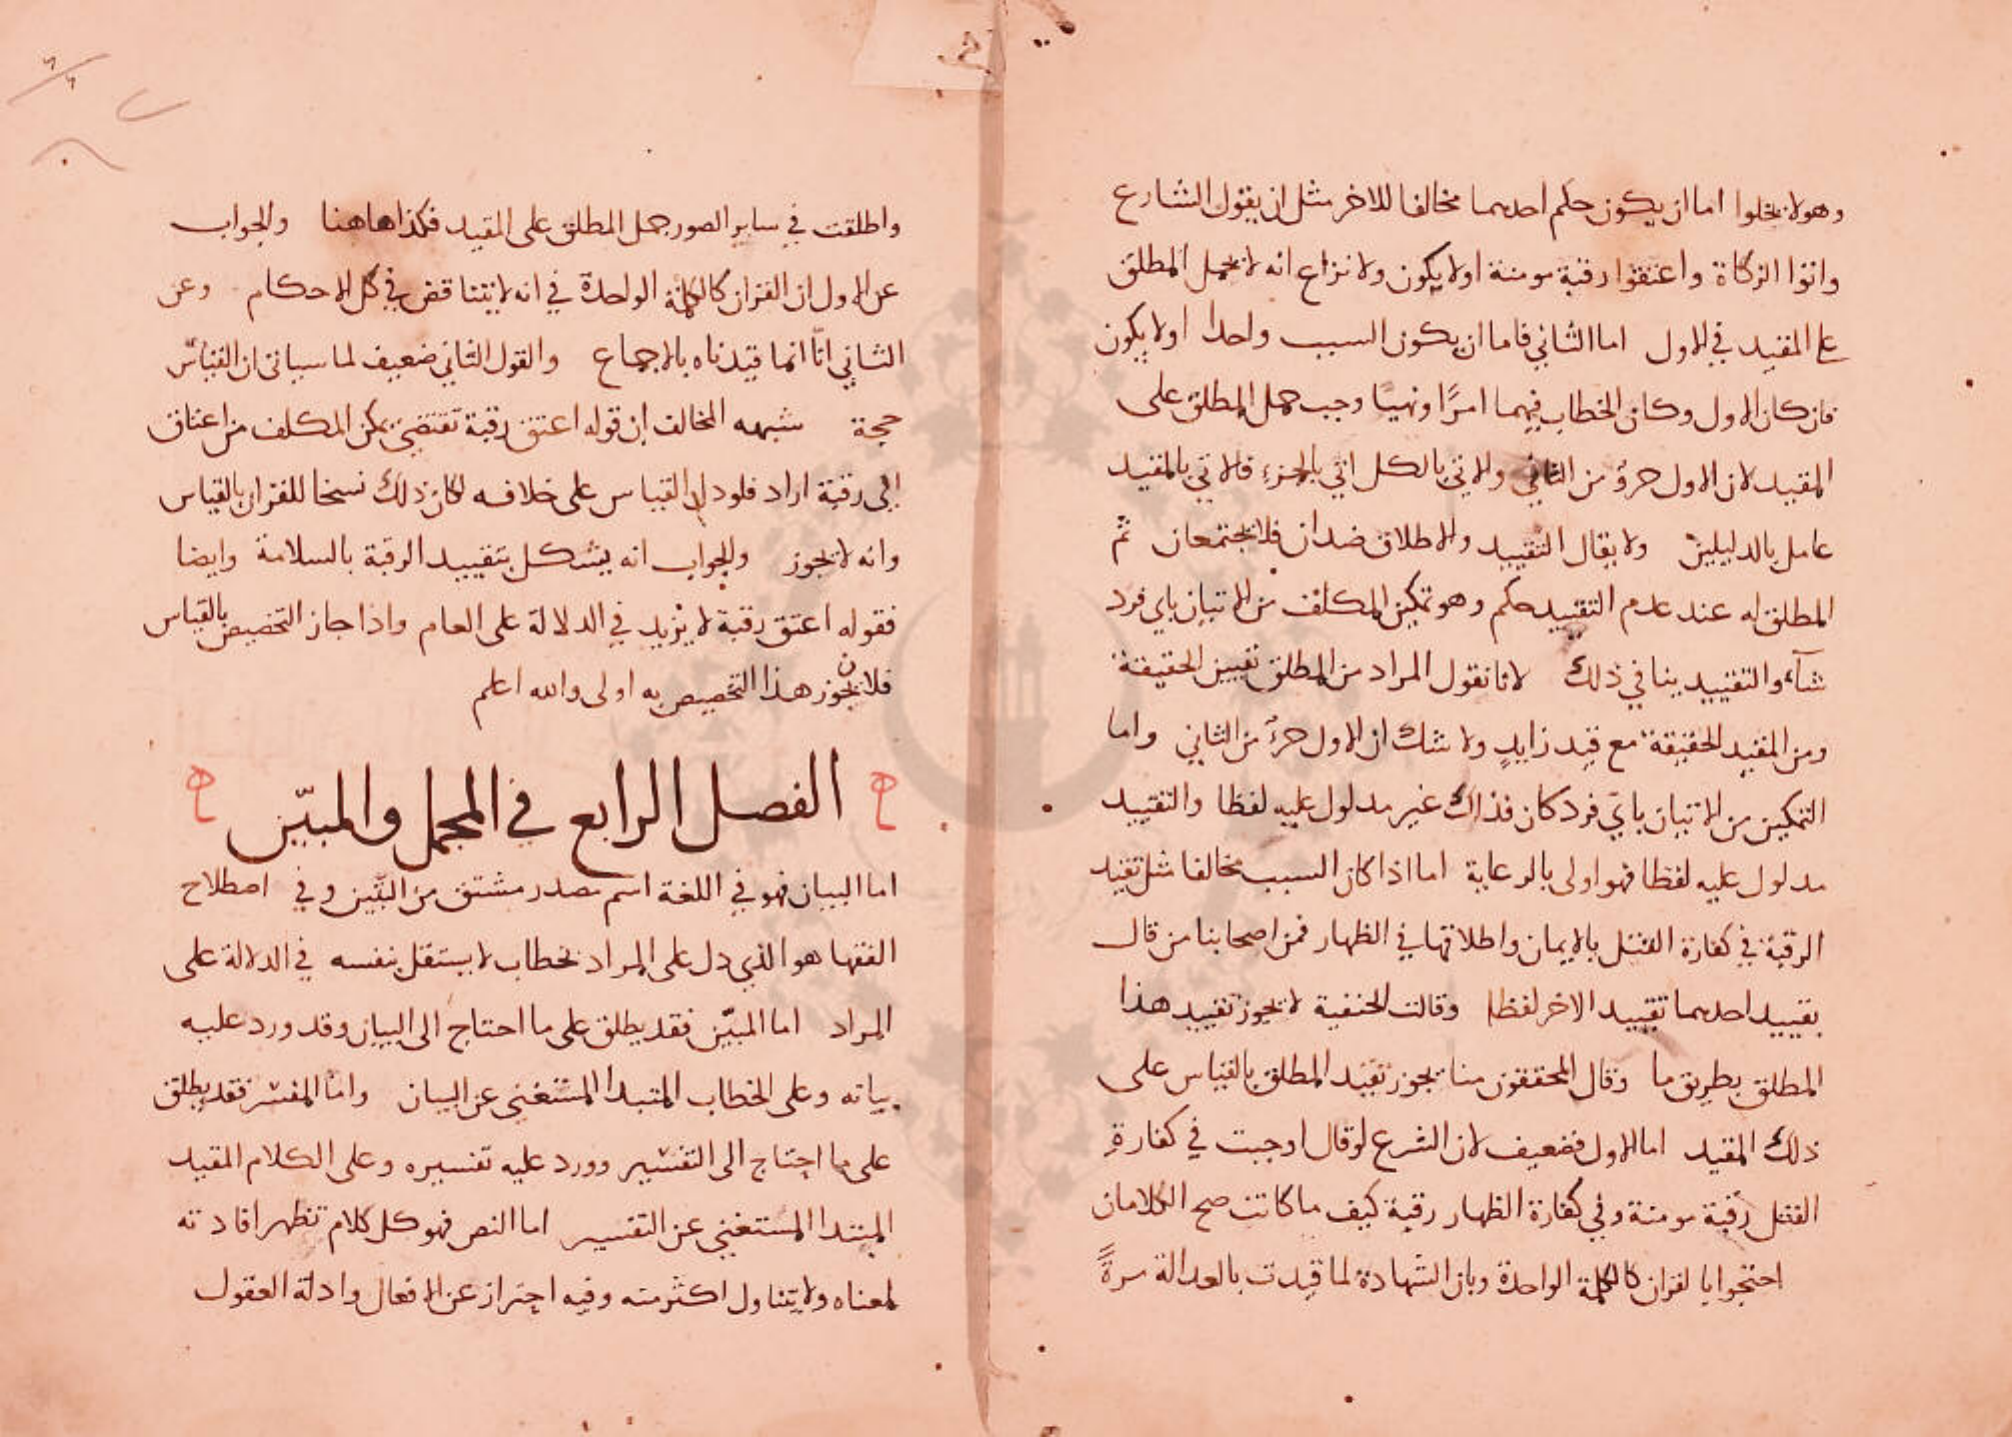 وهو لا يخلوا اما ان يكون حكم احدهما مخالفا للاخر مثل ان يقول الشارع
واتوا الزكاة واعتقوا رقبة مومنة اولا يكون ولا نزاع انه لا يحمل المطلق
على المقيد في الاول اما الثاني فاما ان يكون السبب واحدا اولا يكون
فان كان الاول وكان الخطاب فيهما امرًا او نهيًا وجب حمل المطلق على
المقيد لان الاول جزؤ من الثاني والاتي بالكل اتي بالجزء فالاتي بالمقيد
عامل بالدليلين ولا يقال التقييد والاطلاق ضدان فلا يجتمعان ثم
المطلق له عند عدم التقييد حكم وهو تمكين المكلف من الاتيان باي فرد
شآء والتقييد ينافي ذلك لانا نقول المراد من المطلق نفس الحقيقة
ومن المقيد الحقيقة مع قيد زايدٍ ولا شك ان الاول جزءٌ من الثاني واما
التمكين من الاتيان بايّ فرد كان فذاك غير مدلول عليه لفظا والتقييد
مدلول عليه لفظا فهو اولى بالرعاية اما اذا كان السبب مخالفا مثل تقيد
الرقبة في كفارة القتل بالايمان واطلاقها في الظهار فمن اصحابنا من قال
بقييد احدهما تقييد الاخر لفظا وقالت الحنفية لا يجوز تقييد هذا
المطلق بطريق ما وقال المحققون منا يجوز تقيد المطلق بالقياس على
ذلك المقيد اما الاول فضعيف لان الشرع لو قال اوجبت في كفارةِ
القتل رقبة مومنة وفي كفارة الظهار رقبة كيف ما كانت صح الكلامان
احتجوا بالقران كالكلمة الواحدة وبان الشهادة لما قيدت بالعدالة مرةً
واطلقت في ساير الصور حمل المطلق على المقيد فكذا هاهنا والجواب
عن الاول ان القران كالكلمة الواحدة في انه لا يتناقض في كل الاحكام وعن
الثاني انّا انما قيدناه بالاجماع والقول الثاني ضعيف لما سياتي ان القياس
حجة شبهه المخالف ان قوله اعتق رقبة تقتضي تمكن المكلف من اعتاق
اي رقبة اراد فلو دل القياس على خلافه لكان ذلك نسخا للقران بالقياس
وانه لا يجوز والجواب انه يشكل بتقييد الرقبة بالسلامة وايضا
فقوله اعتق رقبة لا يزيد في الدلالة على العام واذا جاز التخصيص بالقياس
فلان يجوز هذا التخصيص به اولى والله اعلم
الفصل الرابع في المجمل والمبيّن
اما البيان فهو في اللغة اسم مصدر مشتق من التبين وفي اصطلاح
الفقها هو الذي دل على المراد بخطاب لا يستقل بنفسه في الدلالة على
المراد اما المبيّن فقد يطلق على ما احتاج الى البيان وقد ورد عليه
بيانه وعلى الخطاب المتبدا المستغني عن البيان واما المفسر فقد يطلق
على ما احتاج الى التفسير وورد عليه تفسيره وعلى الكلام المقيد
المبتدا المستغني عن التفسير اما النص فهو كل كلام تظهر افادته
لمعناه ولا يتناول اكثر منه وفيه احتراز عن الافعال وادلة العقول